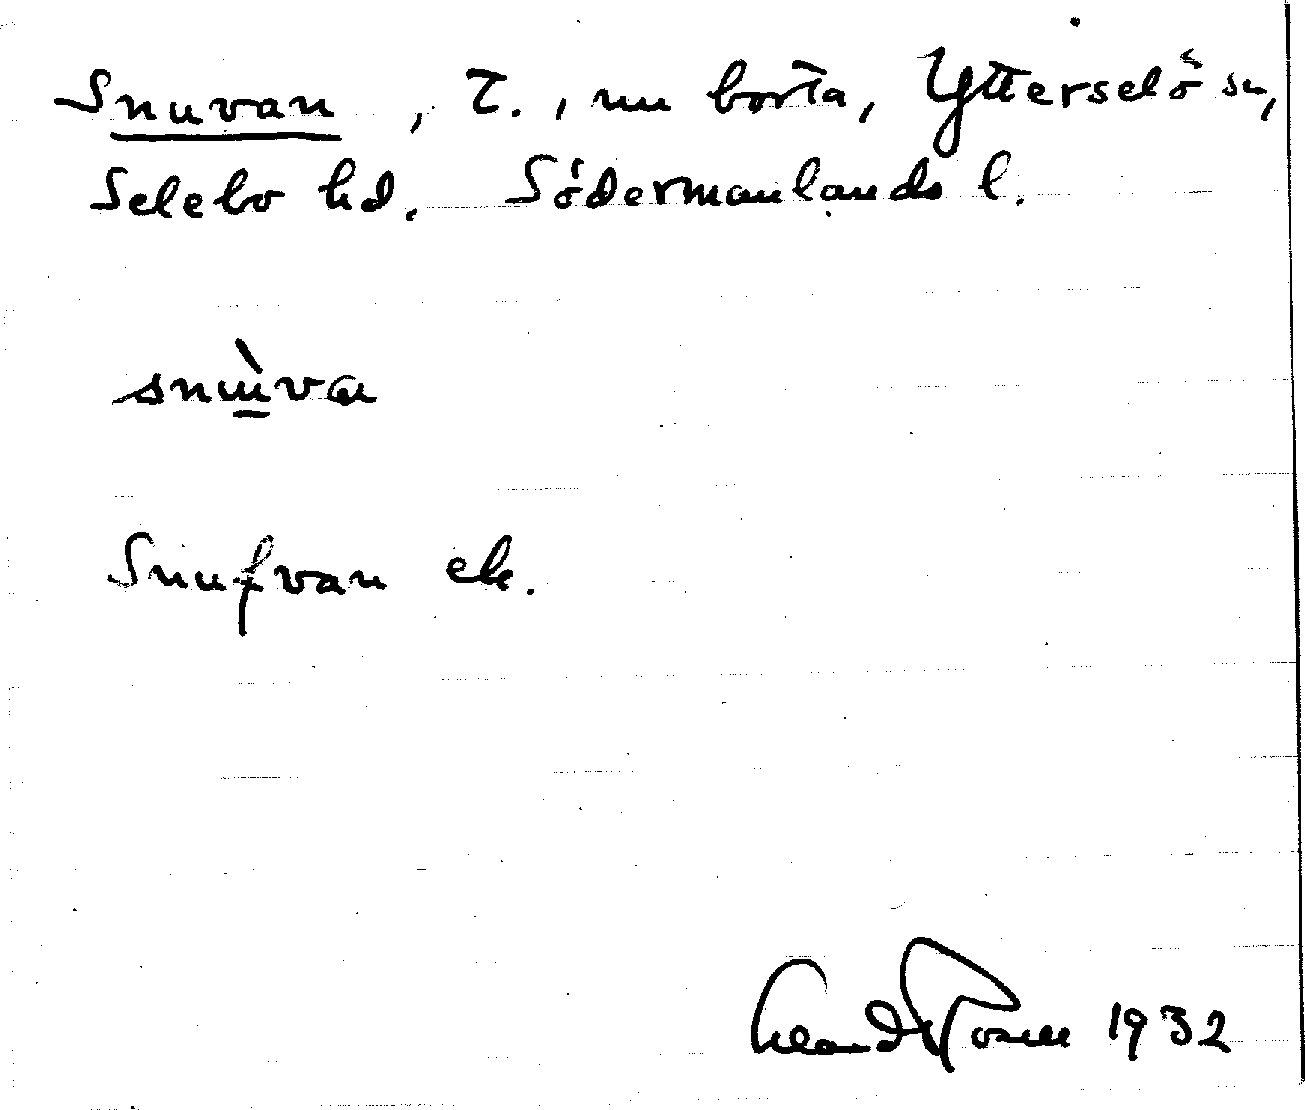 Snuvan, T., nu borta, Ytterselö sn,
Selebo hd. Södermanlands l.
snɯ̀va
Snufvan ek.
1932